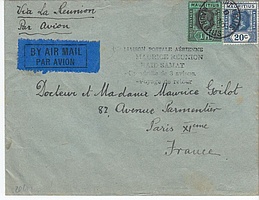 Via La Reunion
Par Avion
BY AIR MAIL
PAR AVION
MAURITIUS
MAURITIUS
20c
LIAISON POSTALE AERIENNE
MAURICE REUNION
Docteur et Madame Maurice Coilot
82, Avenue Parmentier
Paris XIeme
France